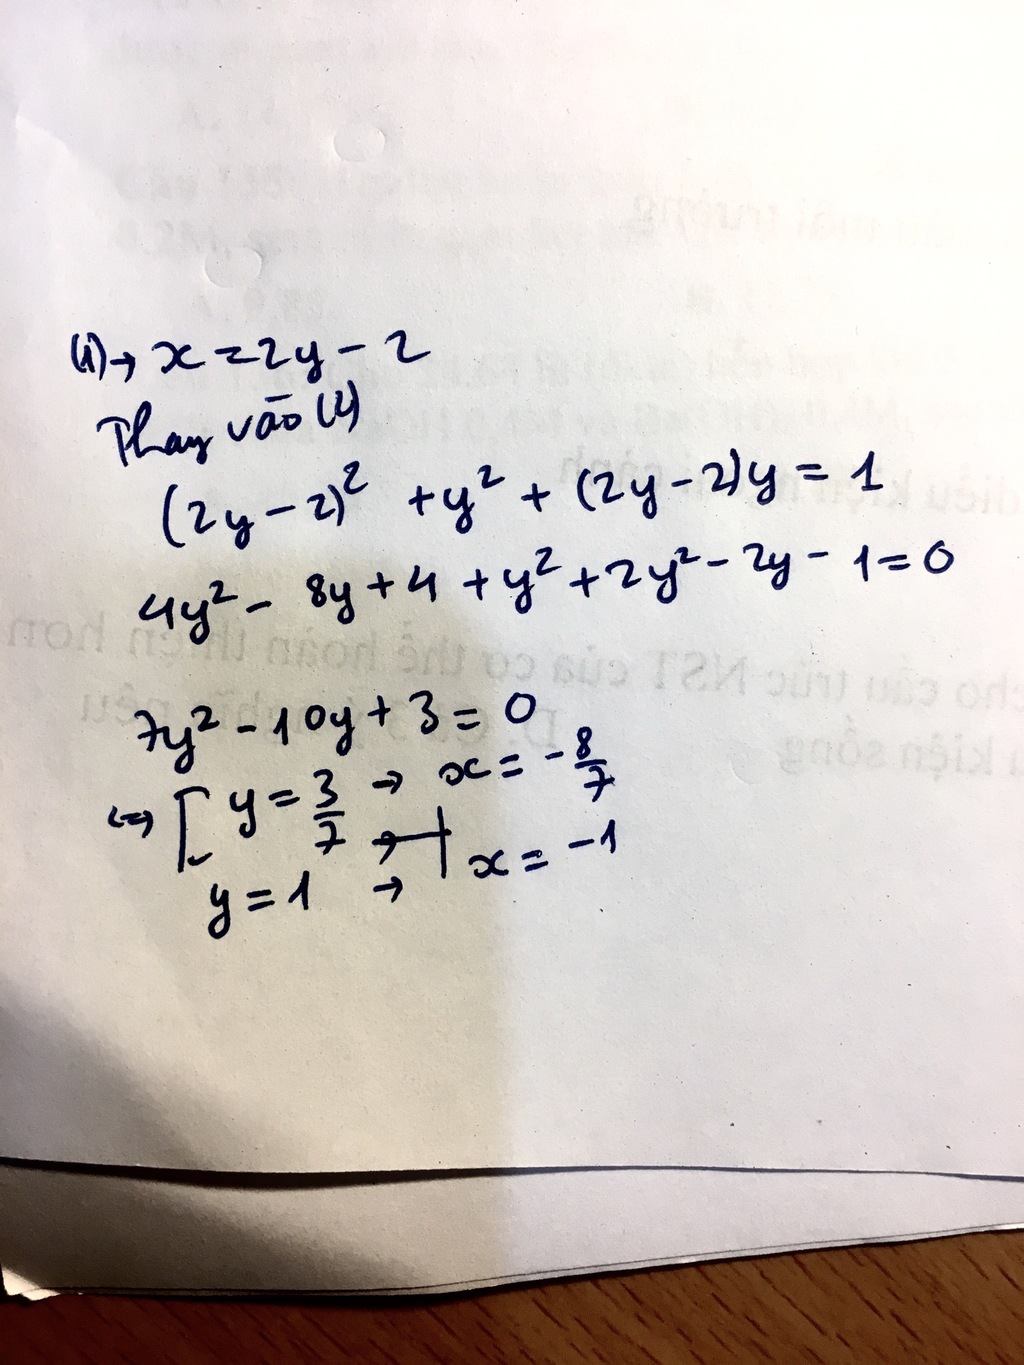 (1) → x = 2y - 2
Thay vào (2)
(2y - 2)² + y² + (2y - 2)y = 1
4y² - 8y + 4 + y² + 2y² - 2y - 1 = 0
7y² - 10y + 3 = 0
⇔ [ y = 3/7 → x = -8/7
y = 1 → x = -1